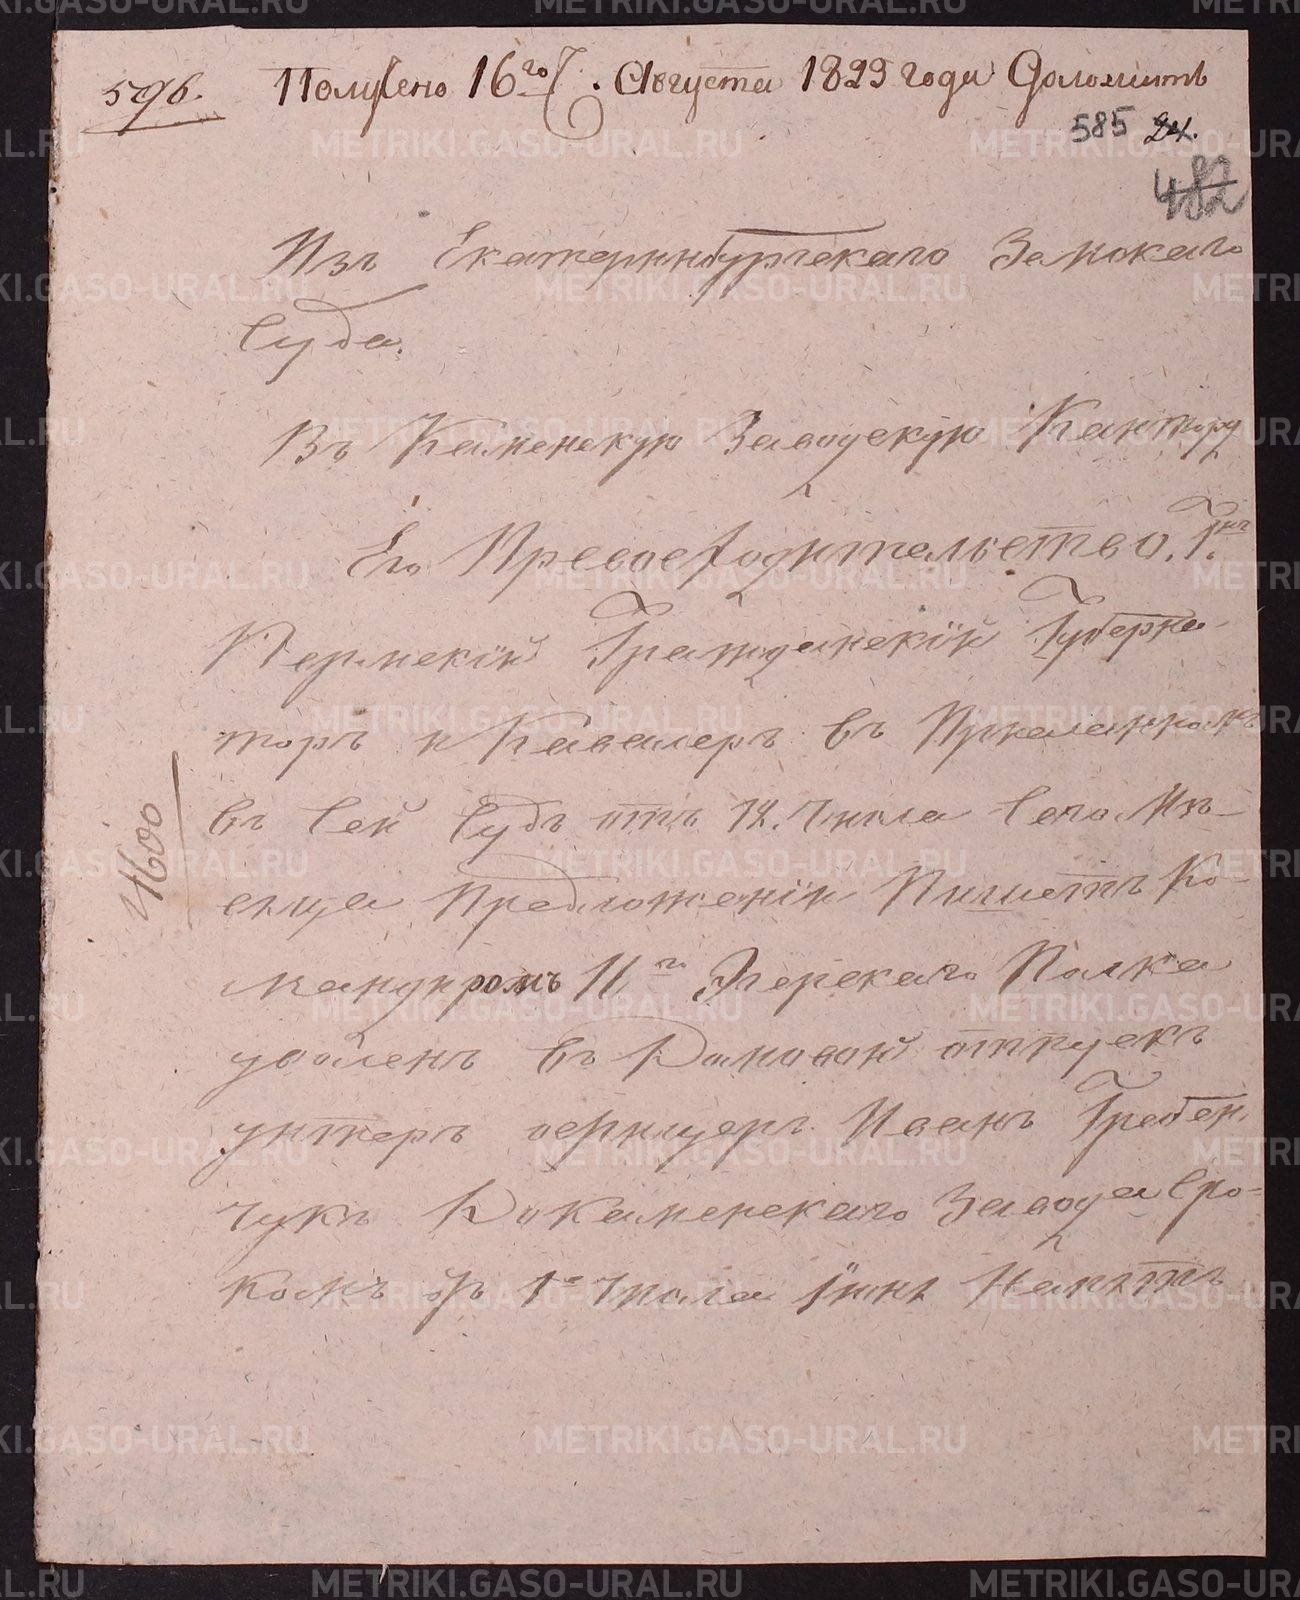 596. Получено 16го Августа 1829 года Доложить
585 24.
482
Изъ Екатеринбургскаго Земскаго
Суда.
Въ Каменскую Заводскую Кантору
Его Превосходительство Гнъ
Пермскій Гражданскій Губерна-
торъ и Кавалеръ въ
въ Сей Судъ отъ 12. Числа Сего Мѣ-
сяца Предложеніи Пишетъ Ко-
мандиромъ 11го Эгерскаго Полка
уволенъ въ Домовой отпускъ
унтеръ офицеръ Иванъ Гребен-
чукъ Каменскаго Завода Сро-
комъ съ 1е Числа
4600
METRIKI.GASO-URAL.RU